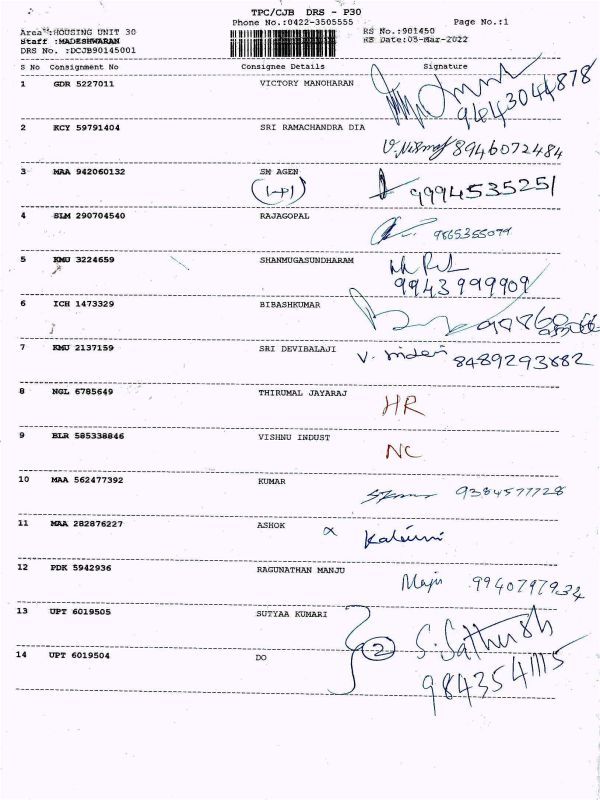 TPC/CJB DRS - P30
Phone No.:0422-3505555 Page No.:1
Area :HOUSING UNIT 30 RS No.:901450
Staff :MADESHWARAN RS Date:05-Mar-2022
DRS No. :DCJB90145001
S No Consignment No Consignee Details Signature
1 GDR 5227011 VICTORY MANOHARAN
9443044878
2 KCY 59791404 SRI RAMACHANDRA DIA
8946072484
3 MAA 942060132 SM AGEN
9994535251
4 SLM 290704540 RAJAGOPAL
9865355079
5 KMU 3224659 SHANMUGASUNDHARAM
9943999909
6 ICH 1473329 BIBASHKUMAR
7 KMU 2137159 SRI DEVIBALAJI
8489293882
8 NGL 6785649 THIRUMAL JAYARAJ
HR
9 BLR 585338846 VISHNU INDUST
NC
10 MAA 562477392 KUMAR
9384577728
11 MAA 282876227 ASHOK
12 PDK 5942936 RAGUNATHAN MANJU
9940797934
13 UPT 6019505 SUTYAA KUMARI
2 S. Sathish
14 UPT 6019504 DO
9843541115